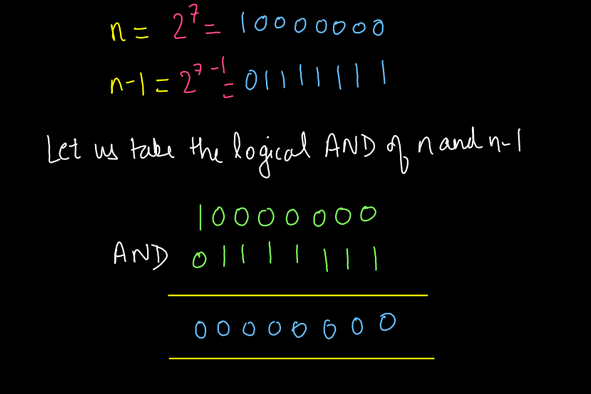 n = 2⁷ = 10000000
n-1 = 2⁷⁻¹ = 01111111
Let us take the logical AND of n and n-1
10000000
AND 01111111
00000000